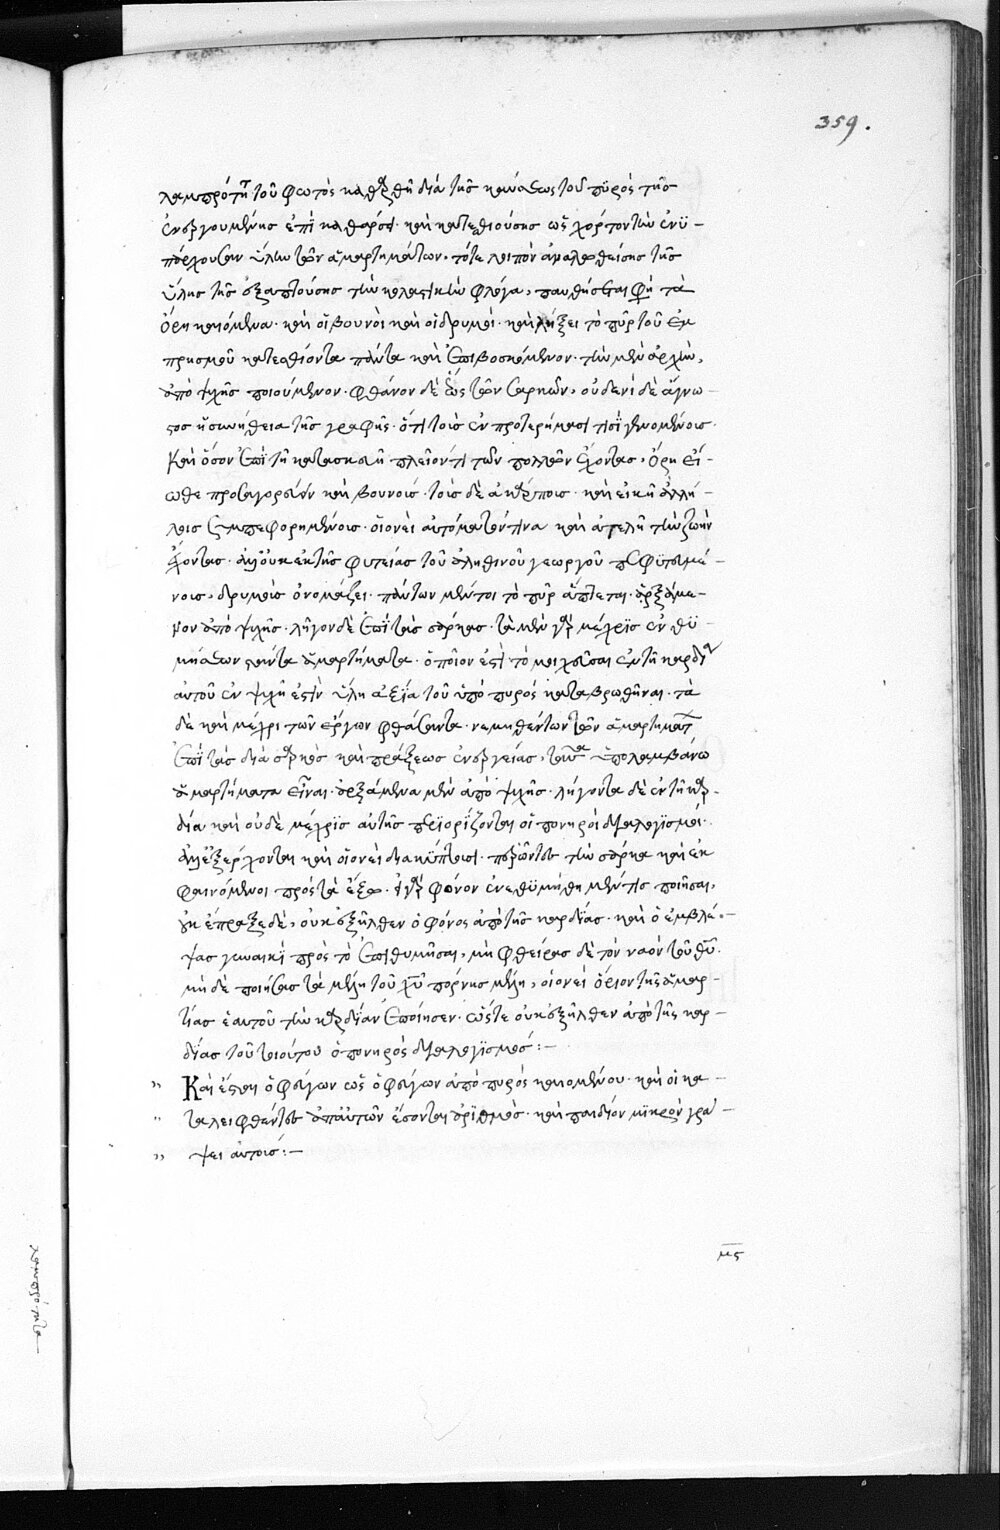 359.
λαμπρότητα τοῦ φωτὸς καθαρθῆ διὰ τῆς καύσεως τοῦ πυρὸς τῆς
ἐνεργουμένης ἐπὶ καθάρσει· καὶ κατεσθιούσης ὡς χόρτον τὴν ἐνυ-
πάρχουσαν ὕλην τῶν ἁμαρτημάτων· τότε λοιπὸν ἀναλωθείσης τῆς
ὕλης τῆς ἐξαπτούσης τὴν κολαστικὴν φλόγα, παυθήσεται φησὶ τὰ
ὄρη καιόμενα· καὶ οἱ βουνοὶ καὶ οἱ δρυμοί· καὶ λήξει τὸ πῦρ τοῦ ἐμ
πρησμοῦ κατεσθίοντα πάντα καὶ ἐπιβοσκόμενον· τὴν μὲν ἀρχὴν,
ἀπὸ ψυχῆς ποιούμενον· φθάνον δὲ ἕως τῶν σαρκῶν, οὐδενὶ δὲ ἄγνω-
στος ἡ συνήθεια τῆς γραφῆς· ὅτι τοὺς ἐν προτερήμασί τισι γενομένους·
Καὶ ὅσον ἐπὶ τῇ κατασκευῇ πλεῖόν τι τῶν πολλῶν ἔχοντας, ὄρη εἴ-
ωθε προσαγορεύειν καὶ βουνούς· τοὺς δὲ ἀκάρπους· καὶ εἰκῆ ἀλλή-
λοις συμπεφορημένους· οἱονεὶ αὐτόματόν τινα καὶ ἀτελῆ τὴν ζωὴν
ἔχοντας· ἀλλ' οὐκ ἐκ τῆς φυτείας τοῦ ἀληθινοῦ γεωργοῦ πεφυτευμέ-
νους, δρυμοὺς ὀνομάζει· πάντων μέντοι τὸ πῦρ ἅπτεται· ἀρξάμε-
νον ἀπὸ ψυχῆς· λῆγον δὲ ἐπὶ τὰς σάρκας· τὰ μὲν γὰρ μέχρις ἐνθυ-
μήσεων ὄντα ἁμαρτήματα· ὁποῖόν ἐστι τὸ μοιχεῦσαι ἐν τῇ καρδίᾳ
αὐτοῦ ἐν ψυχῇ ἐστὶν ὕλη ἀξία τοῦ ὑπὸ πυρὸς καταβρωθῆναι· τὰ
δὲ καὶ μέχρι τῶν ἔργων φθάσαντα· νεμηθέντων τῶν ἁμαρτημάτ
ἐπὶ τὰς διὰ σαρκὸς καὶ πράξεως ἐνεργείας, ταῦτα ὑπολαμβάνω
ἁμαρτήματα εἶναι· ἀρξάμενα μὲν ἀπὸ ψυχῆς· λήγοντα δὲ ἐν τῇ καρ-
δίᾳ καὶ οὐδὲ μέχρις αὐτῆς περιορίζονται οἱ πονηροὶ διαλογισμοί·
ἀλλ' ἐξέρχονται καὶ οἱονεὶ διακύπτουσι· περῶντες τὴν σάρκα καὶ ἐκ
φαινόμενοι πρὸς τὰ ἔξω· εἰ γὰρ φόνον ἐνεθυμήθη μέν τις ποιῆσαι,
οὐκ ἔπραξε δὲ, οὐκ ἐξῆλθεν ὁ φόνος ἀπὸ τῆς καρδίας· καὶ ὁ ἐμβλέ-
ψας γυναικὶ πρὸς τὸ ἐπιθυμῆσαι, μὴ φθείρας δὲ τὸν ναὸν τοῦ θῦ·
μὴ δὲ ποιήσας τὰ μέλη τοῦ χῦ πόρνης μέλη, οἱονεὶ ὅριον τῆς ἁμαρ-
τίας ἑαυτοῦ τὴν καρδίαν ἐποίησεν· ὥστε οὐκ ἐξῆλθεν ἀπὸ τῆς καρ-
δίας τοῦ τοιούτου ὁ πονηρὸς διαλογισμός:-
" Καὶ ἔσται ὁ φεύγων ὡς ὁ φεύγων ἀπὸ πυρὸς καιομένου· καὶ οἱ κα-
" ταλειφθέντες ἀπ' αὐτῶν ἔσονται ἀριθμὸς· καὶ παιδίον μικρὸν γρά-
" ψει αὐτούς:-
μς
λαμπρότητα